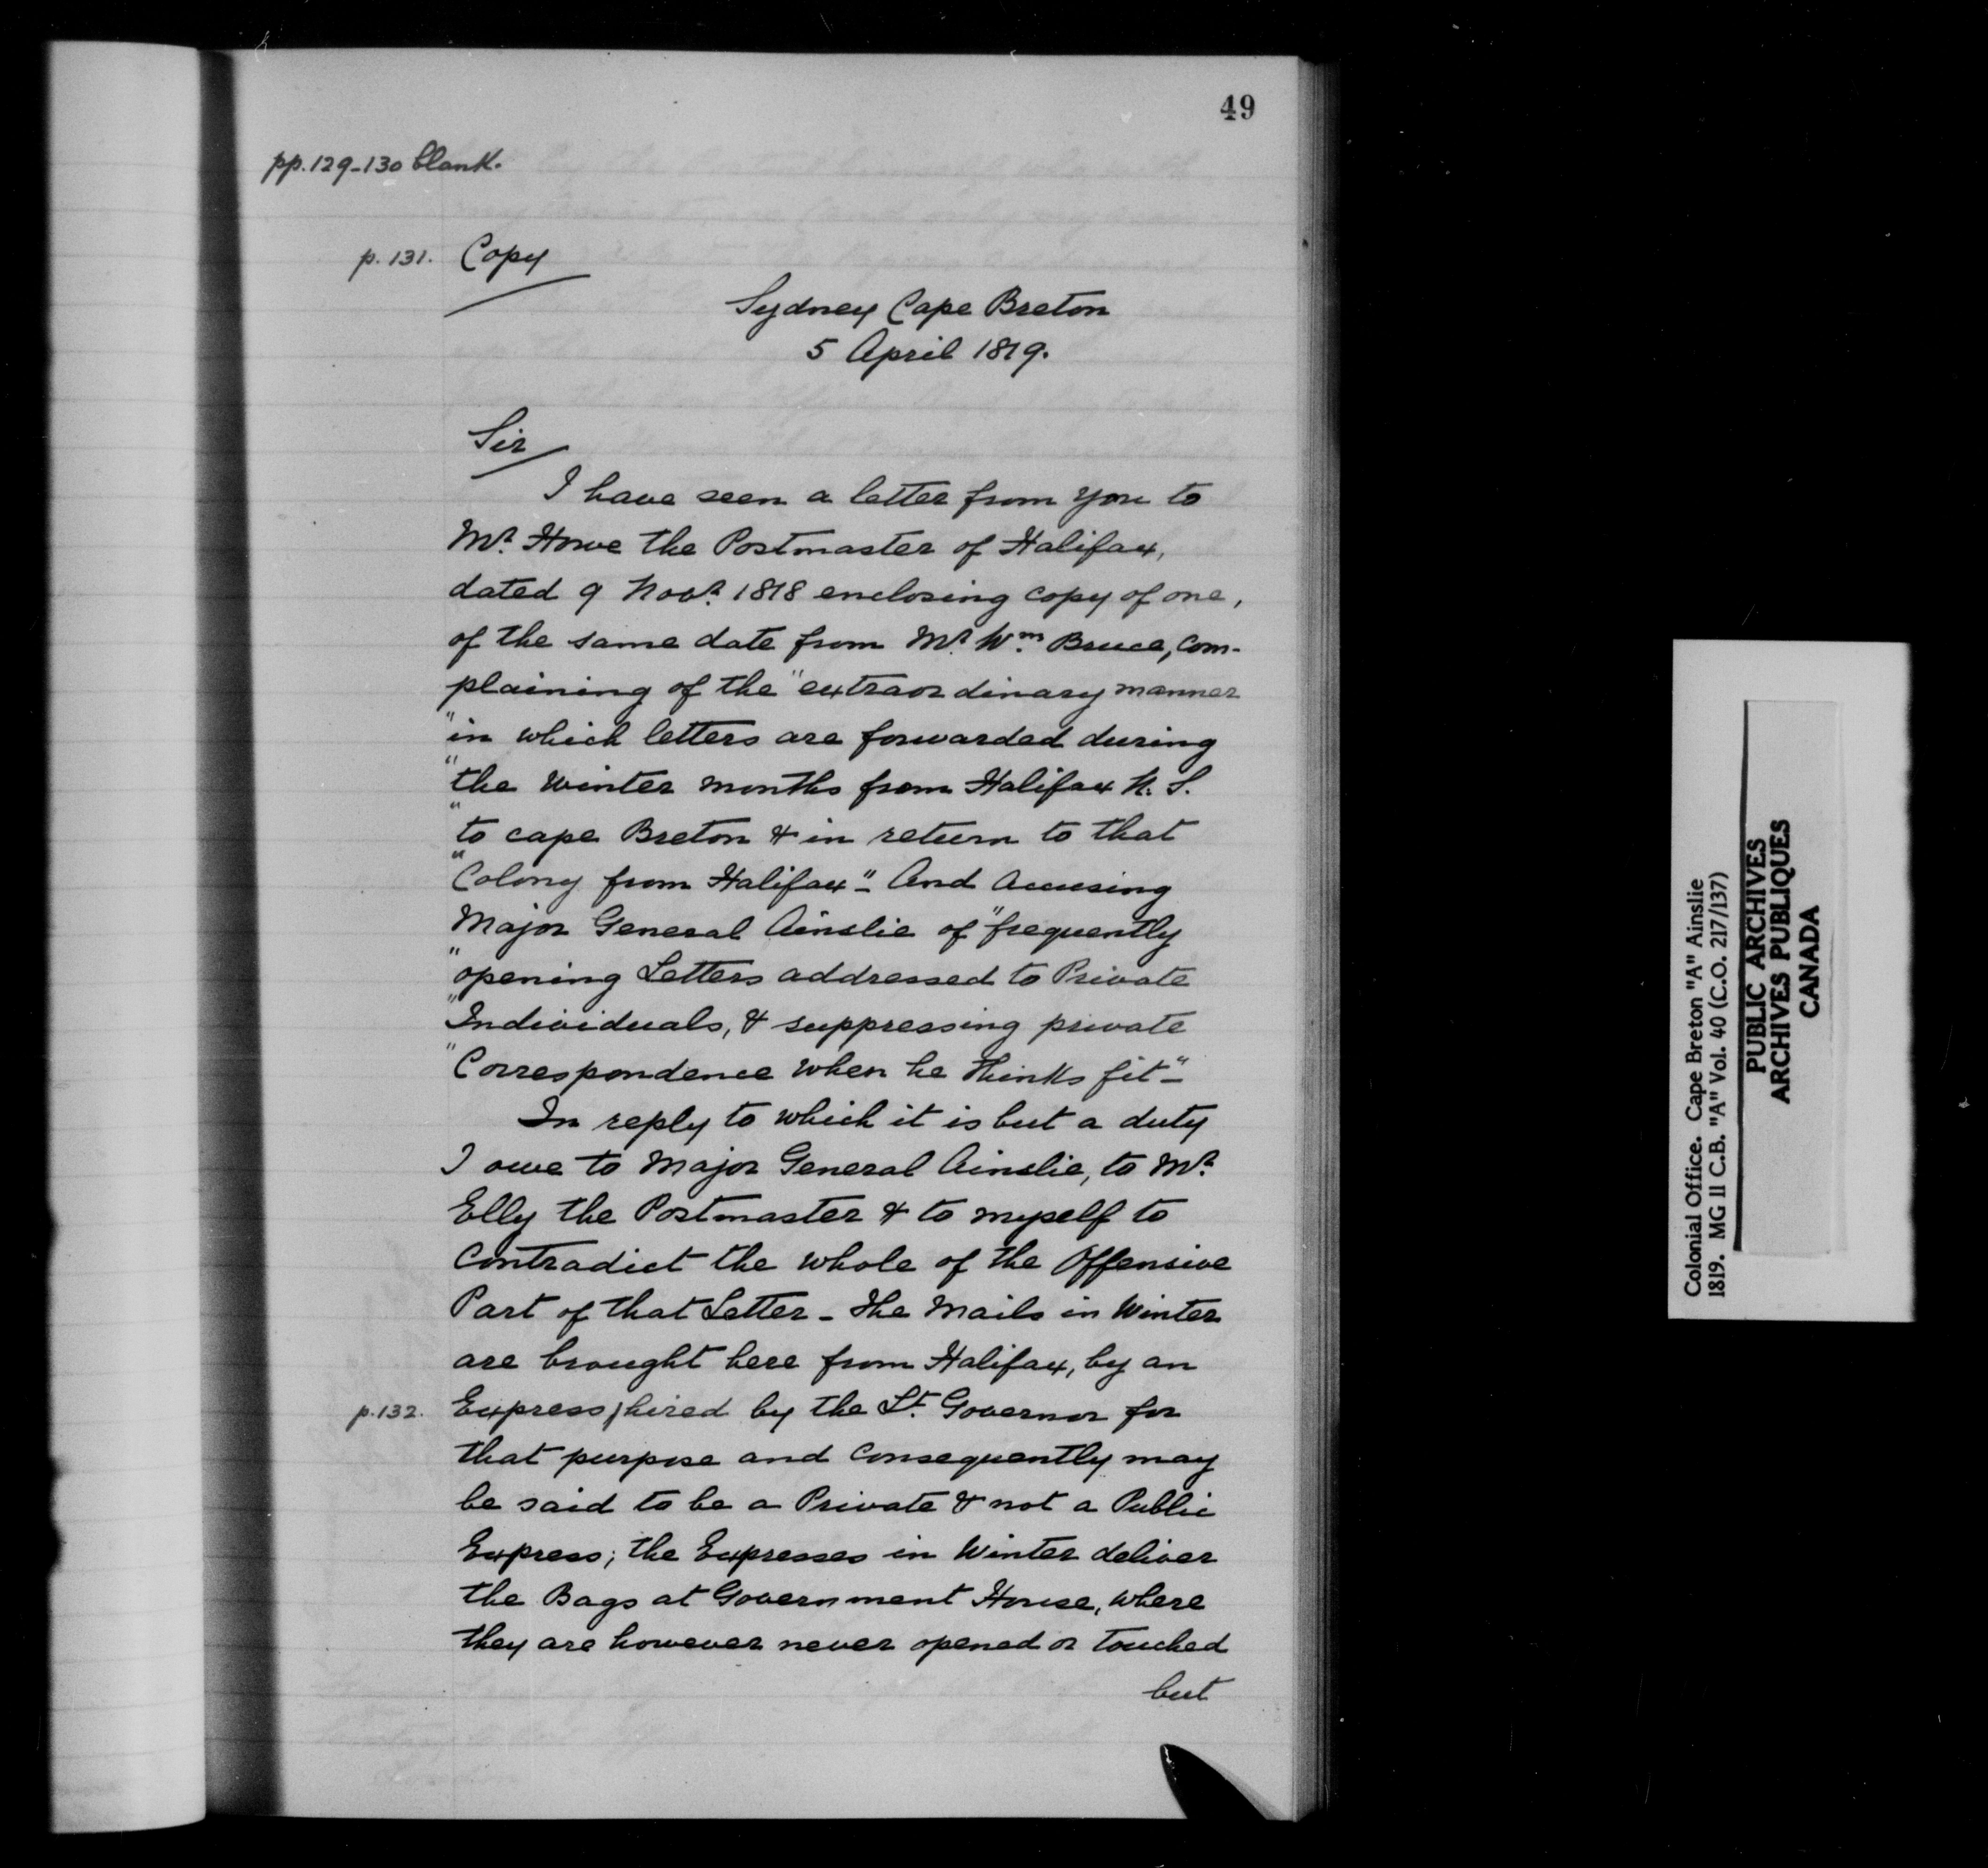 49
pp. 129-130 blank.
p. 131. Copy
Sydney Cape Breton
5 April 1819.
Sir
I have seen a letter from you to
Mr. Howe the Postmaster of Halifax,
dated 9 Novr. 1818 enclosing copy of one,
of the same date from Mr. Wm. Bruce, com-
plaining of the "extraordinary manner
"in which letters are forwarded during
"the Winter months from Halifax N. S.
"to cape Breton & in return to that
"Colony from Halifax" - And Accusing
Major General Ainslie of "frequently
"opening Letters addressed to Private
"Individuals, & suppressing private
"Correspondence when he thinks fit" -
In reply to which it is but a duty
I owe to Major General Ainslie, to Mr.
Elly the Postmaster & to myself to
Contradict the whole of the Offensive
Part of that Letter - The Mails in Winter
are brought here from Halifax, by an
p. 132. Express / hired by the Lt. Governor for
that purpose and Consequently may
be said to be a Private & not a Public
Express; the Expresses in Winter deliver
the Bags at Government House, where
they are however never opened or touched
but
Colonial Office. Cape Breton "A" Ainslie
1819. MG 11 C.B. "A" Vol. 40 (C.O. 217/137)
PUBLIC ARCHIVES
ARCHIVES PUBLIQUES
CANADA